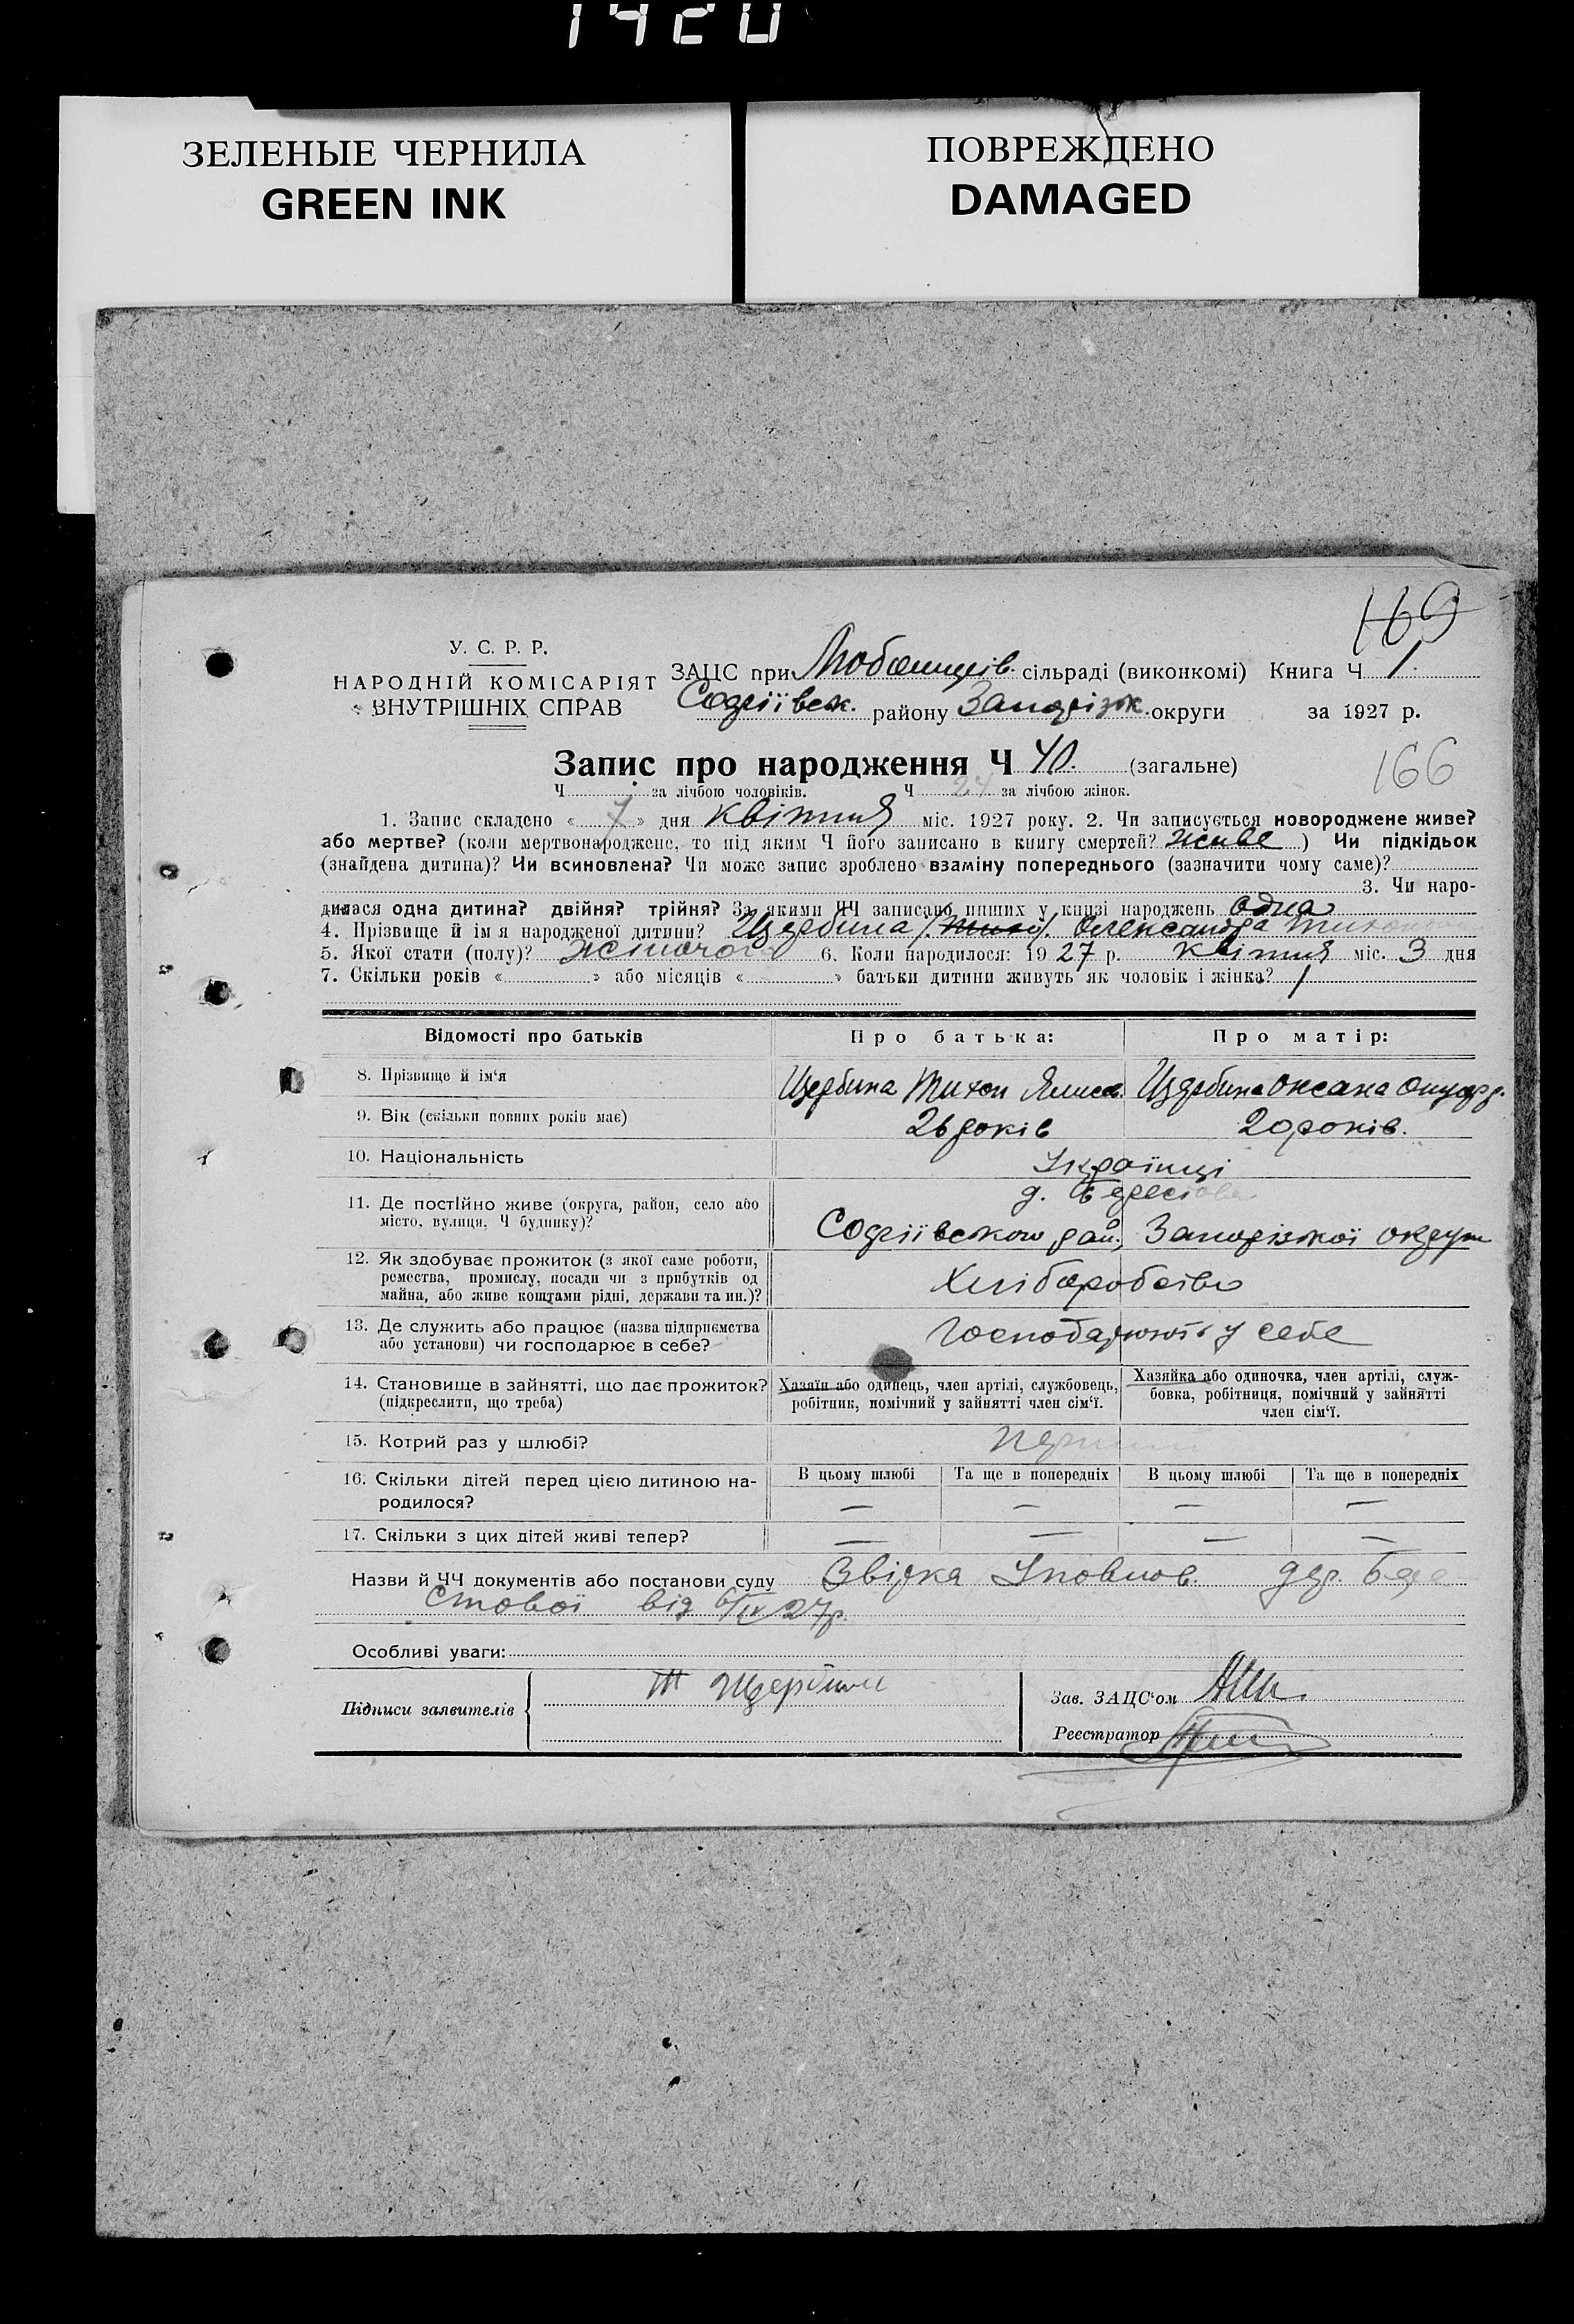 1420
ЗЕЛЕНЫЕ ЧЕРНИЛА
GREEN INK
ПОВРЕЖДЕНО
DAMAGED
169
У. С. Р. Р.
НАРОДНІЙ КОМІСАРІЯТ
ВНУТРІШНІХ СПРАВ
ЗАЦС при Любомирів. сільраді (виконкомі) Книга Ч 1.
Софіївськ. району Запоріжж. округи за 1927 р.
Запис про народження Ч 40. (загальне)
166
Ч за лічбою чоловіків. Ч 24 за лічбою жінок.
1. Запис складено « 7 » дня квітня міс. 1927 року. 2. Чи записується новороджене живе?
або мертве? (коли мертвонароджене, то під яким Ч його записано в книгу смертей? живе ) Чи підкідьок
(знайдена дитина)? Чи всиновлена? Чи може запис зроблено взаміну попереднього (зазначити чому саме)?
3. Чи наро-
дилася одна дитина? двійня? трійня? За якими ЧЧ записано инших у книзі народжень одна
4. Прізвище й ім я народженої дитини? Щербина Олександра Тихон
5. Якої стати (полу)? жіночого 6. Коли народилося: 1927 р. квітня міс. 3 дня
7. Скільки років « » або місяців « » батьки дитини живуть як чоловік і жінка?
Відомості про батьків Про батька: Про матір:
8. Прізвище й ім‘я Щербина Тихон Щербина Оксана
9. Вік (скільки повних років має) 26 років 20 років.
10. Національність Українці
11. Де постійно живе (округа, район, село або
місто, вулиця, Ч будинку)?
д. Берестова
Софіївського рай., Запорізької округи
12. Як здобуває прожиток (з якої саме роботи,
ремества, промислу, посади чи з прибутків од
майна, або живе коштами рідні, держави та ин.)?
Хліборобство
13. Де служить або працює (назва підприємства
або установи) чи господарює в себе?
Господарюють у себе
14. Становище в зайнятті, що дає прожиток?
(підкреслити, що треба)
Хазяїн або одинець, член артілі, службовець,
робітник, помічний у зайнятті член сім‘ї.
Хазяйка або одиночка, член артілі, служ-
бовка, робітниця, помічний у зайнятті
член сім‘ї.
15. Котрий раз у шлюбі? перший
16. Скільки дітей перед цією дитиною на-
родилося?
В цьому шлюбі Та ще в попередніх В цьому шлюбі Та ще в попередніх
— — — —
17. Скільки з цих дітей живі тепер? — — — —
Назви й ЧЧ документів або постанови суду Звідка Уповнов. дер. Бере
стової від 6/IV 27р.
Особливі уваги:
Підписи заявителів Т Щербина
Зав. ЗАЦС‘ом
Реєстратор